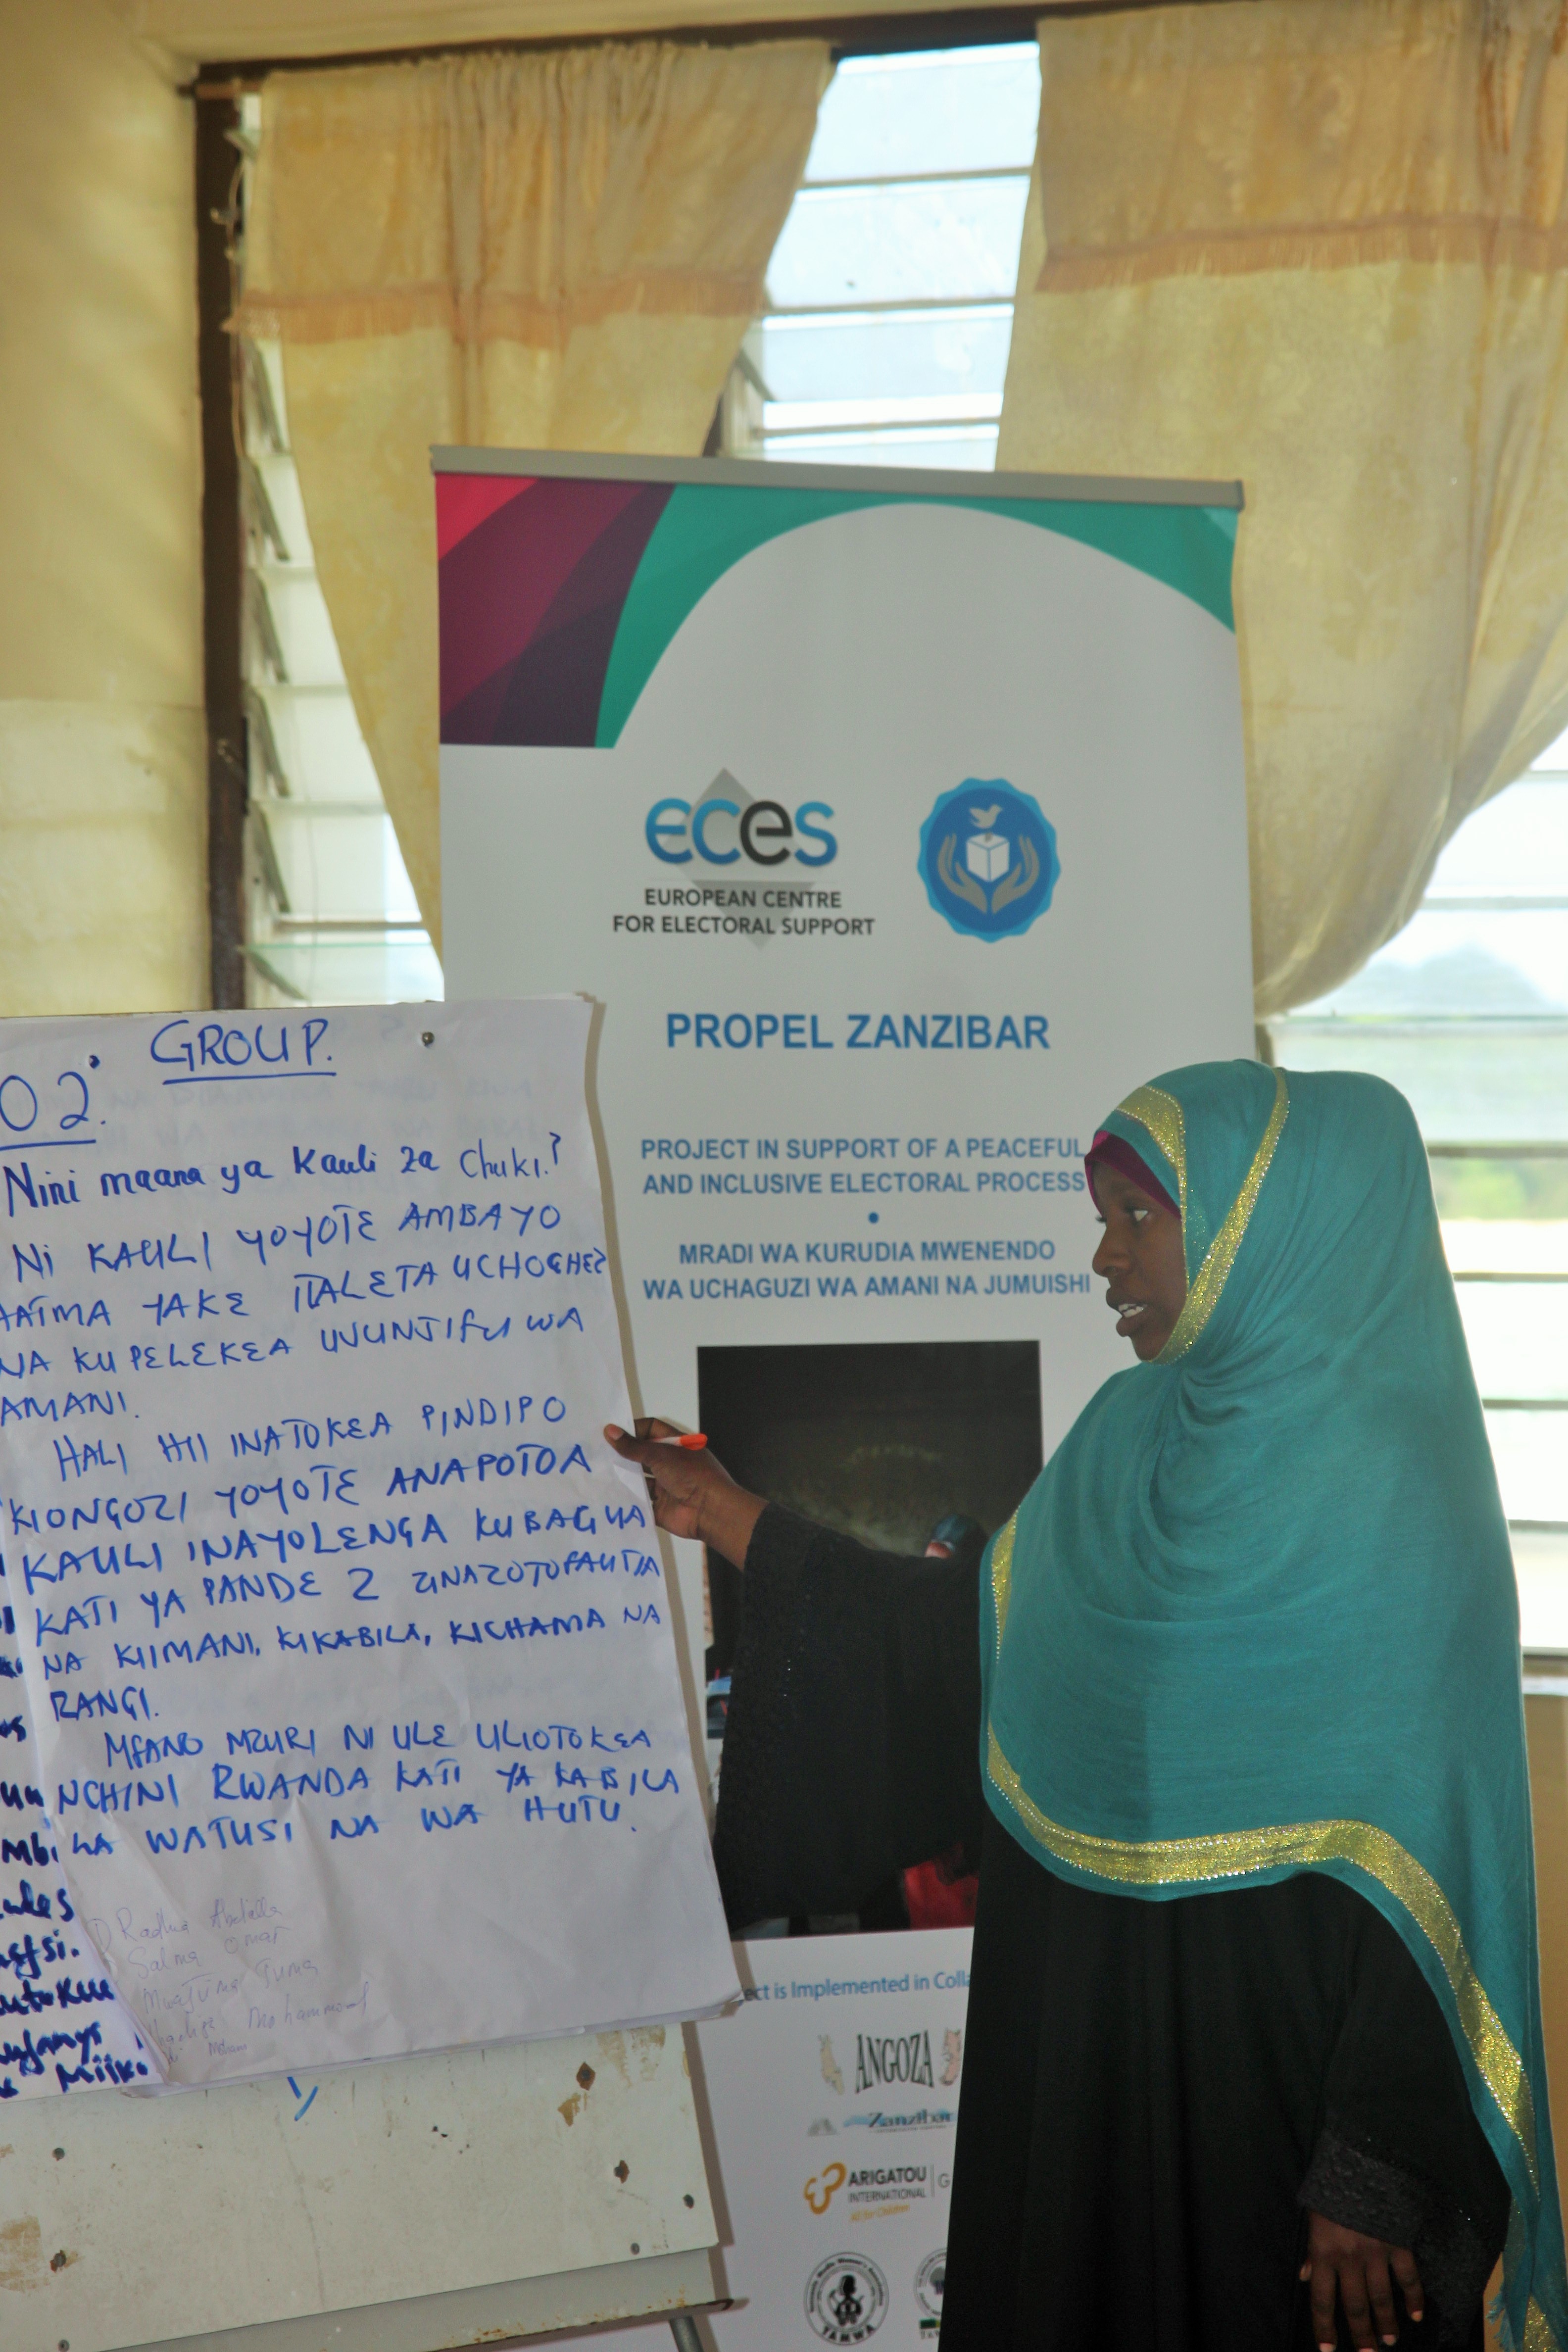 GROUP.
02.
Nini maana ya Kauli za Chuki.?
NI KAULI YOYOTE AMBAYO
YAKE ITALETA
NA KUPELEKEA UVUNJIFU WA
AMANI.
HALI HII INATOKEA PINDIPO
KIONGOZI YOYOTE ANAPOTOA
KAULI INAYOLENGA KUBAGUA
KATI YA PANDE 2 ZINAZOTOFAUTIA
NA KIIMANI, KIKABILA, KICHAMA NA
RANGI.
MFANO MZURI NI ULE ULIOTOKEA
NCHINI RWANDA KATI YA KABILA
LA WATUSI NA WA HUTU.
Radhia Abdalla
Salma Omar
Mwajuma Juma
Mohammed
eces
EUROPEAN CENTRE
FOR ELECTORAL SUPPORT
PROPEL ZANZIBAR
PROJECT IN SUPPORT OF A PEACEFUL
AND INCLUSIVE ELECTORAL PROCESS
•
MRADI WA KURUDIA MWENENDO
WA UCHAGUZI WA AMANI NA JUMUISHI
ect is Implemented in Colla
ANGOZA
Zanzibar
ARIGATOU
INTERNATIONAL
All for Children
G
TAMWA